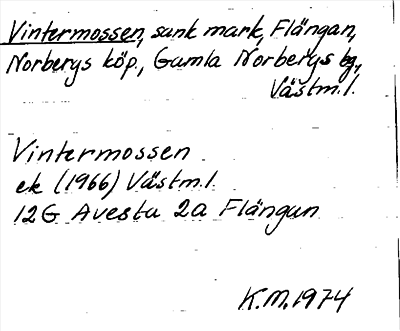 Vintermossen, sank mark, Flängan,
Norbergs köp., Gamla Norbergs bg,
Västm.l.
Vintermossen
ek (1966) Västm.l.
12G Avesta 2a Flängan
K.M. 1974